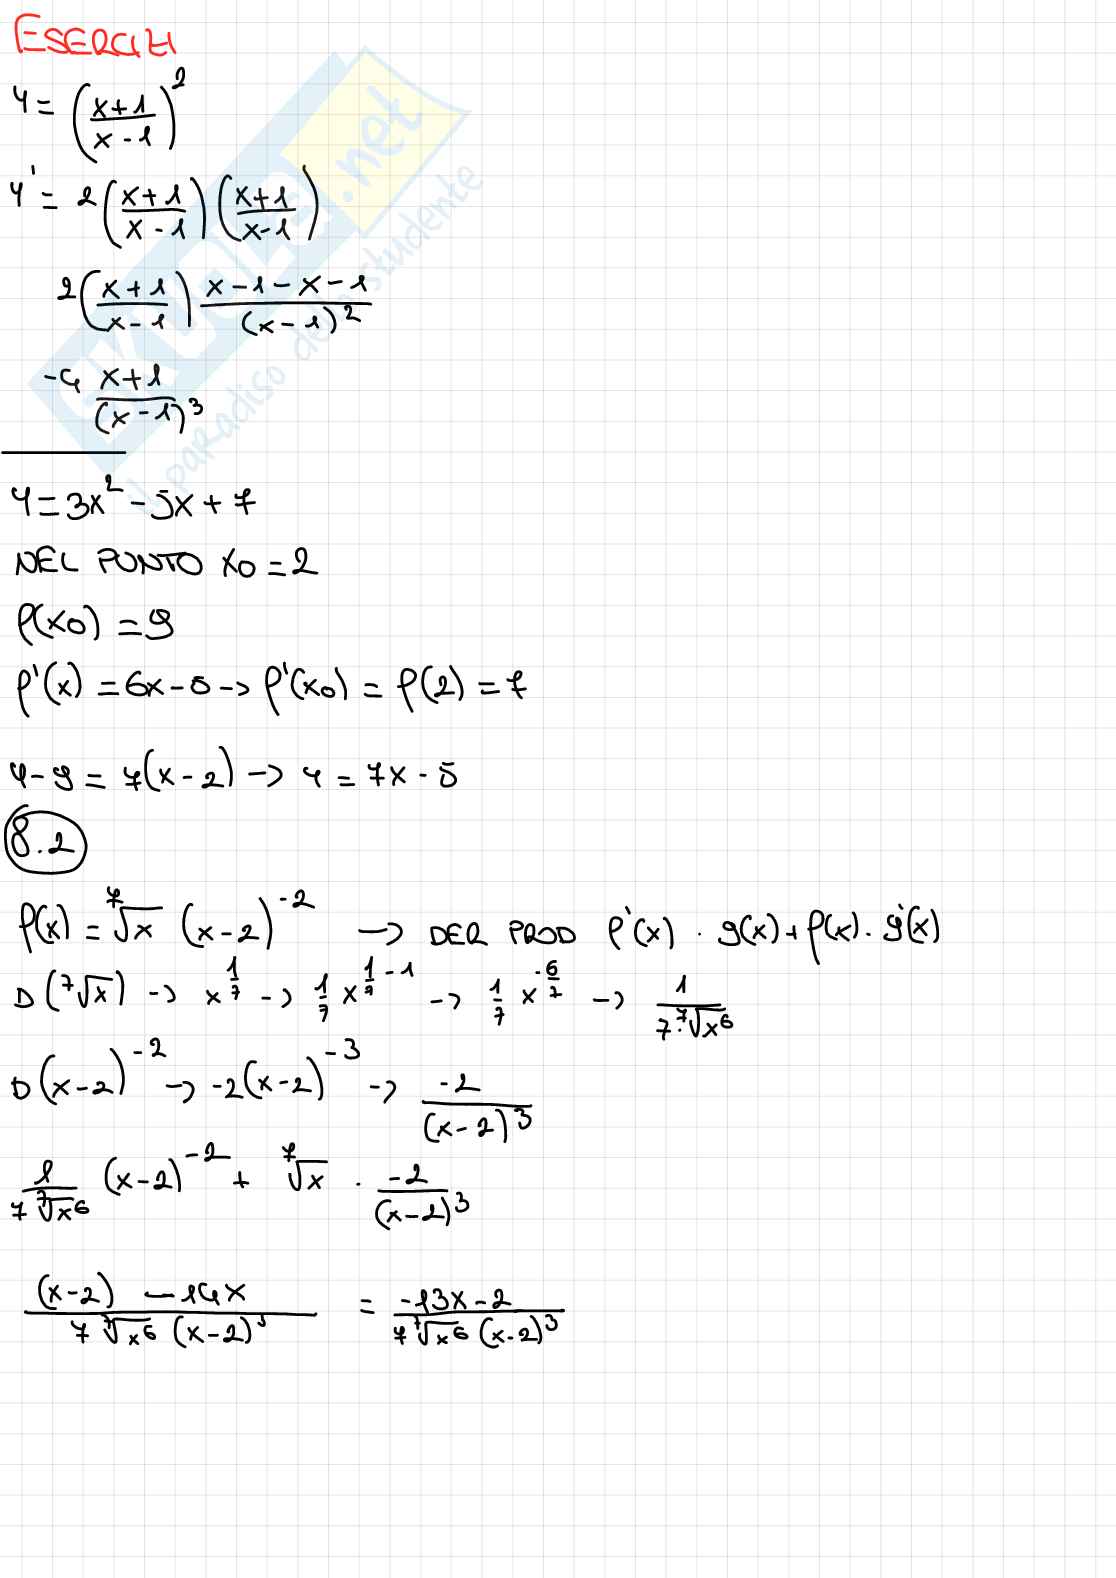 ESERCIZI
y = ((x+1)/(x-1))^2
y' = 2((x+1)/(x-1))((x+1)/(x-1))
2((x+1)/(x-1)) (x-1-x-1)/(x-1)^2
-4 (x+1)/(x-1)^3
y = 3x^2 - 5x + 7
NEL PUNTO x0 = 2
f(x0) = 9
f'(x) = 6x - 5 -> f'(x0) = f(2) = 7
y - 9 = 7(x-2) -> y = 7x - 5
8.2
f(x) = ⁷√x (x-2)^-2 -> DER PROD f'(x) · g(x) + f(x) · g'(x)
D(⁷√x) -> x^(1/7) -> 1/7 x^(1/7 - 1) -> 1/7 x^(-6/7) -> 1/(7·⁷√x^6)
D(x-2)^-2 -> -2(x-2)^-3 -> -2/(x-2)^3
1/(7 ⁷√x^6) (x-2)^-2 + ⁷√x · -2/(x-2)^3
((x-2) - 14x)/(7 ⁷√x^6 (x-2)^3) = (-13x-2)/(7 ⁷√x^6 (x-2)^3)
skuola.net
il paradiso dello studente